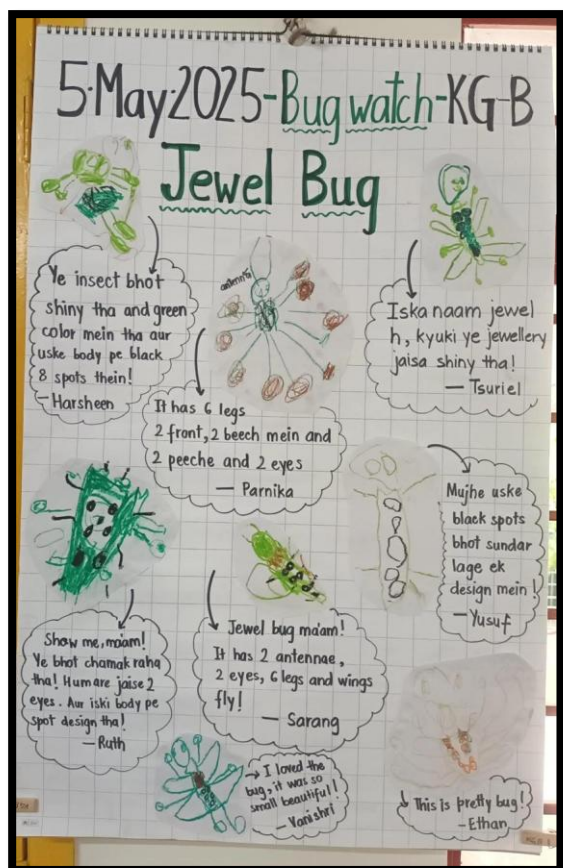 5·May·2025-Bug watch-KG-B
Jewel Bug
Ye insect bhot
shiny tha and green
color mein tha aur
uske body pe black
8 spots thein!
-Harsheen
antenna
Iska naam jewel
h, kyuki ye jewellery
jaisa shiny tha!
— Tsuriel
It has 6 legs
2 front, 2 beech mein and
2 peeche and 2 eyes
— Parnika
Mujhe uske
black spots
bhot sundar
lage ek
design mein!
-Yusuf
Show me, ma'am!
Ye bhot chamak raha
tha! Humare jaise 2
eyes. Aur iski body pe
spot design tha!
-Ruth
Jewel bug ma'am!
It has 2 antennae,
2 eyes, 6 legs and wings
fly!
— Sarang
I loved the
bug, it was so
small beautiful!
- Vanishri
This is pretty bug!
-Ethan